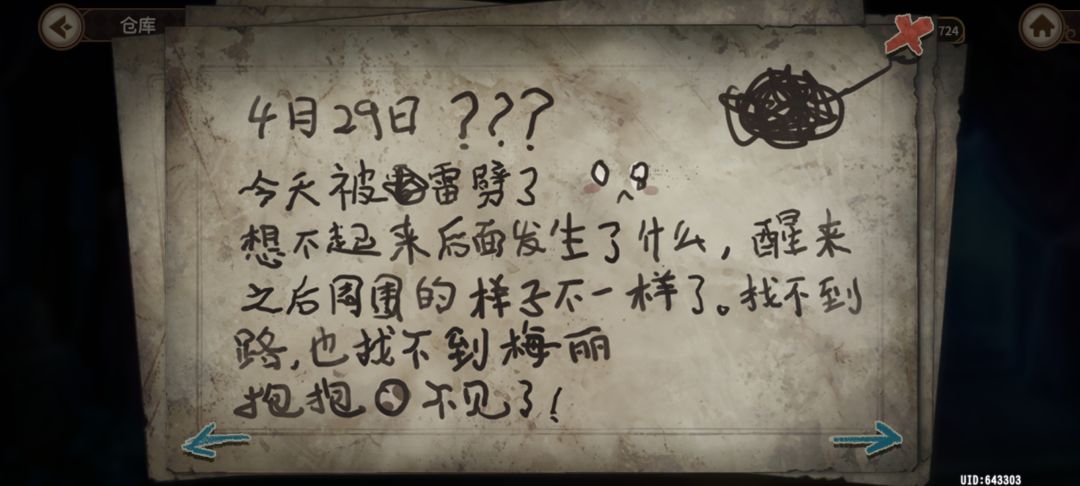 仓库
724
4月29日 ???
今天被雷劈了
想不起来后面发生了什么，醒来
之后周围的样子不一样了。找不到
路，也找不到梅丽
抱抱也不见了！
UID:643303